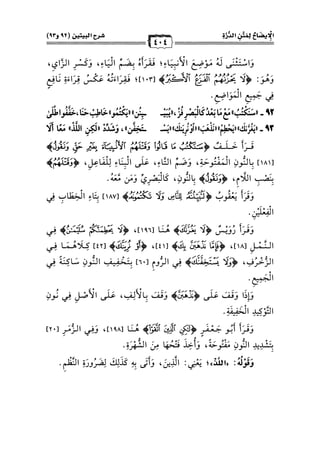 الإيضاح لمتن الدرة
٤٠٤
شرح البيتين (٩٢ و٩٣)
وَاسْتَثْنَى لَهُ مَوْضِعَ الأَنبِيَاءِ؛ فَقَرَأَهُ بِضَمِّ الْيَاءِ، وَكَسْرِ الزَّايِ،
وَهُوَ: ﴿لَا يَحْزُنُهُمُ ٱلْفَزَعُ ٱلْأَكْبَرُ﴾ [١٠٣]؛ فَقِرَاءَتُهُ عَكْسُ قِرَاءَةِ نَافِعٍ
فِي جَمِيعِ الْمَوَاضِعِ.
٩٢ -
٩٣ -
قَرَأَ خَلَفٌ ﴿سَنَكْتُبُ مَا قَالُوا وَقَتْلَهُمُ ٱلْأَنۢبِيَآءَ بِغَيْرِ حَقٍّ وَنَقُولُ﴾
[١٨١] بِالنُّونِ الْمَفْتُوحَةِ، وَضَمِّ التَّاءِ، عَلَى الْبِنَاءِ لِلْفَاعِلِ، ﴿وَقَتْلَهُمُ﴾
بِنَصْبِ اللَّامِ، ﴿وَنَقُولُ﴾ بِالنُّونِ، كَالْبَصْرِيِّ وَمَن مَّعَهُ.
وَقَرَأَ يَعْقُوبُ ﴿لَتُبَيِّنُنَّهُ لِلنَّاسِ وَلَا تَكْتُمُونَهُ﴾ [١٨٧] بِتَاءِ الْخِطَابِ فِي
الْفِعْلَيْنِ.
وَقَرَأَ رُوَيْسٌ ﴿لَا يَغُرَّنْكَ﴾ هُنَا [١٩٦]، ﴿لَا يَحْطِمَنْكُمْ سُلَيْمَٰنُ﴾ فِي
النَّمْلِ [١٨]، ﴿فَإِمَّا نَذْهَبَنْ بِكَ﴾ [٤١]، ﴿أَوْ نُرِيَنْكَ﴾ [٤٢] كِلَاهُمَا فِي
الزُّخْرُفِ، ﴿وَلَا يَسْتَخِفَّنْكَ﴾ فِي الرُّومِ [٦٠] بِتَخْفِيفِ النُّونِ سَاكِنَةً فِي
الْجَمِيعِ.
وَإِذَا وَقَفَ عَلَى ﴿نَذْهَبَنْ﴾ وَقَفَ بِالْأَلِفِ، عَلَى الْأَصْلِ فِي نُونِ
التَّوْكِيدِ الْخَفِيفَةِ.
وَقَرَأَ أَبُو جَعْفَرٍ ﴿لَٰكِنَّ ٱلَّذِينَ ٱتَّقَوْا﴾ هُنَا [١٩٨]، وَفِي الزُّمَرِ [٢٠]
بِتَشْدِيدِ النُّونِ مَفْتُوحَةً، وَأُخِذَ فَتْحُهَا مِنَ الشُّهْرَةِ.
وَقَوْلُهُ: «اللَّذْ»؛ يَعْنِي: الَّذِينَ، وَأَتَى بِهِ كَذَلِكَ لِضَرُورَةِ النَّظْمِ.